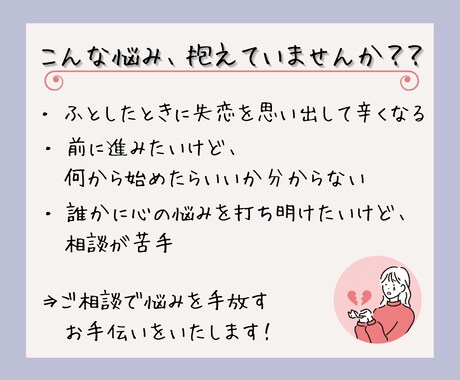 こんな悩み、抱えていませんか??
・ふとしたときに失恋を思い出して辛くなる
・前に進みたいけど、
何から始めたらいいか分からない
・誰かに心の悩みを打ち明けたいけど、
相談が苦手
⇒ご相談で悩みを手放す
お手伝いをいたします!